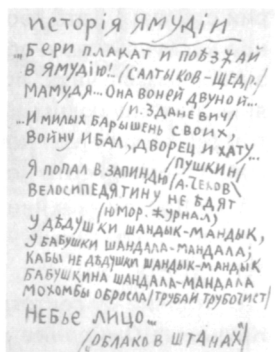 исторiя ЯМУДIИ
...БЕРИ ПЛАКАТ И ПОѢЗЖАЙ
В ЯМУДIЮ!.. /САЛТЫКОВ-ЩЕДР./
МАМУДЯ... ОНА ВОНЕЙ ДВУНОЙ...
/И. ЗДАНЕВИЧ/
...И МИЛЫХ БАРЫШЕНЬ СВОИХ,
ВОЙНУ И БАЛ, ДВОРЕЦ И ХАТУ...
/ПУШКИН/
Я ПОПАЛ В ЗАПИНДЮ /А. ЧЕХОВ\
ВЕЛОСИПЕДЯТИНУ НЕ ѢДЯТ
/ЮМОР. ЖУРНАЛ/
У ДѢДУШКИ ШАНДЫК-МАНДЫК,
У БАБУШКИ ШАНДАЛА-МАНДАЛА;
КАБЫ НЕ ДѢДУШКИ ШАНДЫК-МАНДЫК
БАБУШКИНА ШАНДАЛА-МАНДАЛА
МОХОМБЫ ОБРОСЛА /ТРУБАЙ ТРУБОЧИСТ/
НЕБЬЕ ЛИЦО...
/ОБЛАКО В ШТАНАХ/